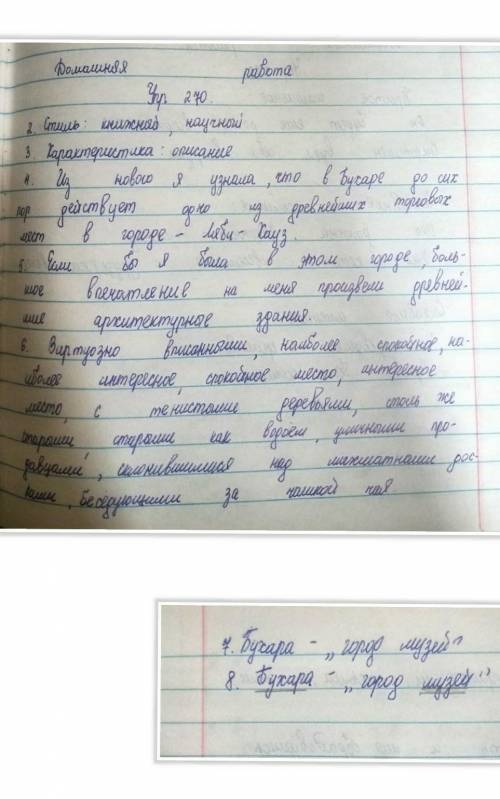 Домашняя работа
Упр 270.
2. Стиль: книжный, научный
3. Характеристика: описание
4. Из нового я узнала, что в Бухаре до сих
пор действует одно из древнейших торговых
мест в городе - Ляби-Хауз.
5. Если бы я была в этом городе, боль-
шое впечатление на меня произвели древней-
шие архитектурные здания.
6. Виртуозно вписанными, наиболее спокойное, на-
иболее интересное, спокойное место, интересное
место, с тенистыми деревьями, столь же
старыми, старыми как водоём, уличными про-
давцами, склонившимися над шахматными дос-
ками, беседующими за чашкой чая.
7. Бухара - „город музей"
8. Бухара - „город музей"